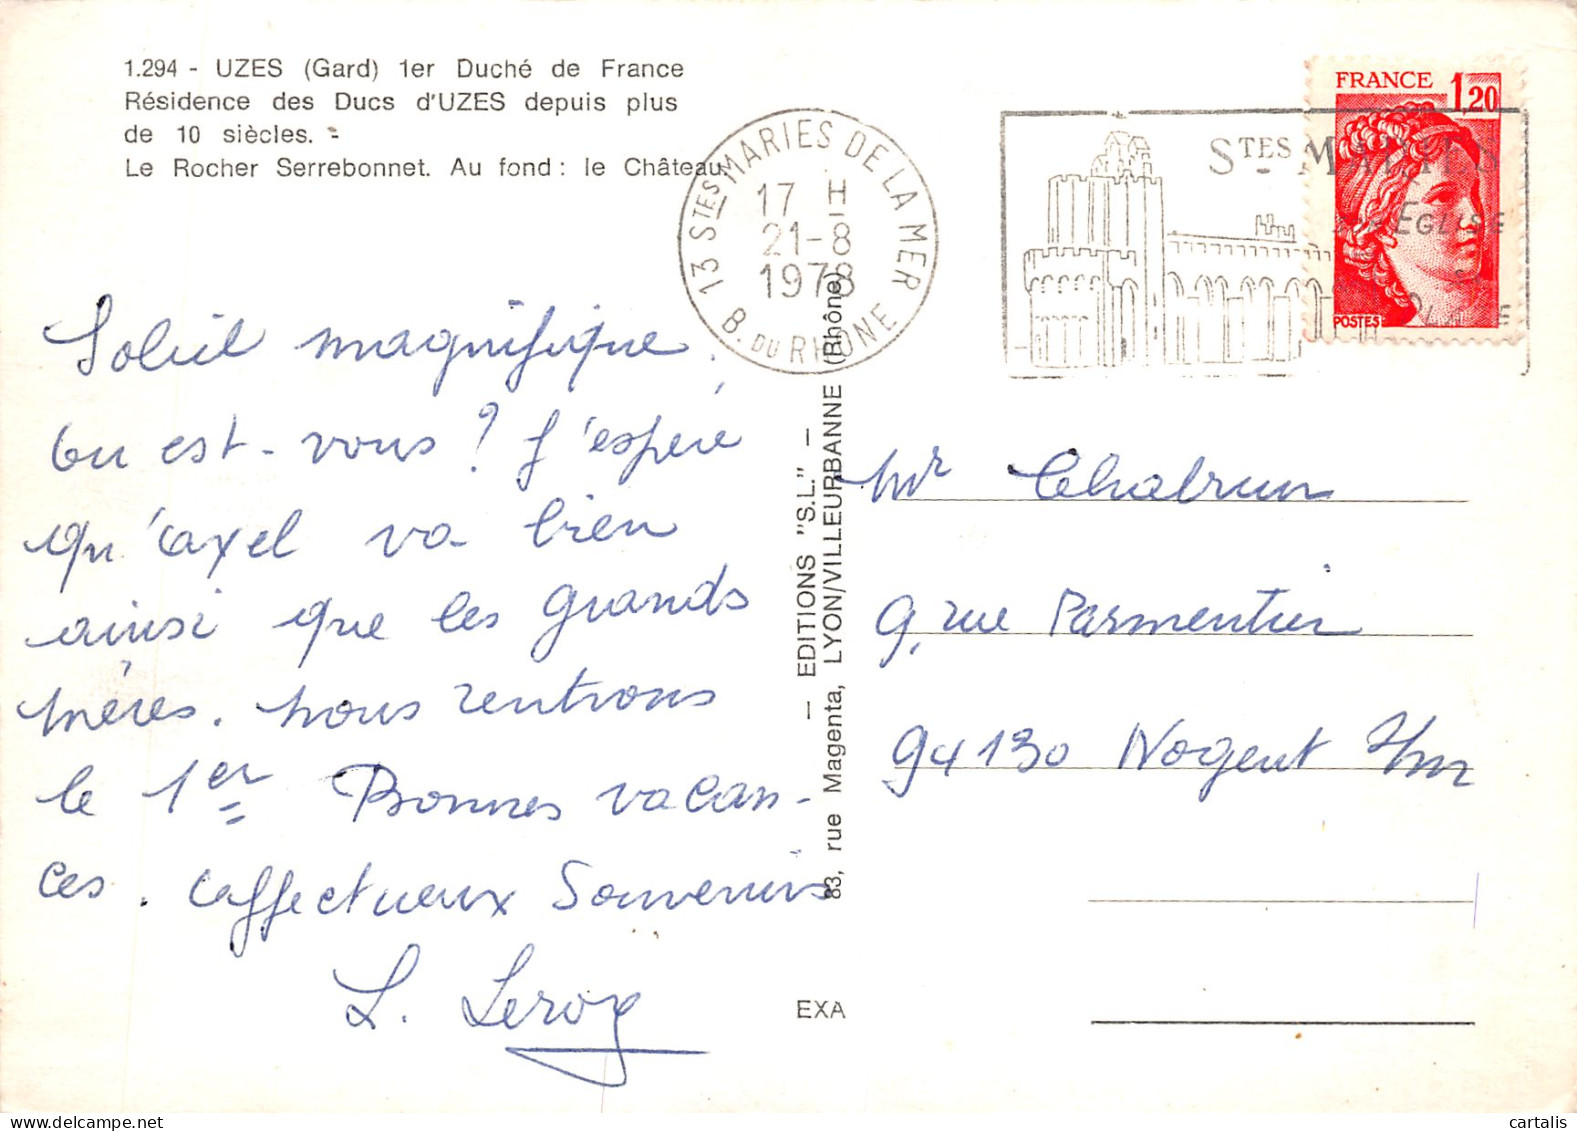 1.294 - UZES (Gard) 1er Duché de France
Résidence des Ducs d'UZES depuis plus
de 10 siècles. -
Le Rocher Serrebonnet. Au fond : le Château.
13 STES MARIES DE LA MER
17 H
21-8
1978
B. DU RHONE
STES MARIES
EGLISE
FRANCE 1,20
POSTES
Soleil magnifique.
Ou est-vous ? J'espère
qu'axel va bien
ainsi que les grands
mères. nous rentrons
le 1er Bonnes vacan-
ces. affectueux Souvenirs
L. Leroy
— EDITIONS "S.L." —
83, rue Magenta, LYON/VILLEURBANNE (Rhône)
EXA
Mr Chabrun
9, rue Parmentier
94130 Nogent s/m
cartalis